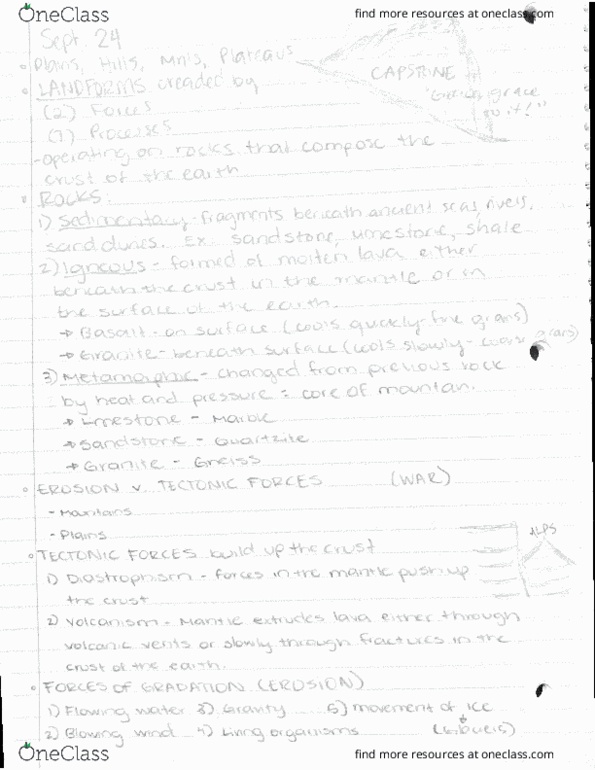 OneClass
find more resources at oneclass.com
Sept. 24
Plains, Hills, Mnts, Plateaus
CAPSTONE
LANDFORMS creaded by
(2) Forces
(7) Processes
grace
-operating on rocks that compose the
crust of the earth
ROCKS:
1) Sedimentary-fragments beneath ancient seas, rivers,
sand dunes. Ex: sandstone, limestone, shale
2) Igneous - formed of molten lava either
beneath the crust in the mantle or on
the surface of the earth.
→ Basalt-on surface (cools quickly-fine grans)
→ Granite-beneath surface (cools slowly-
3) Metamorphic - changed from previous rock
by heat and pressure = core of mountan.
→ Limestone - Marble
→ Sandstone - Quartzite
→ Granite - Gneiss
EROSION v. TECTONIC FORCES (WAR)
- Mountains
- Plains
ALPS
TECTONIC FORCES build up the crust
1) Diastrophism - forces in the mantle push up
the crust
2) Volcanism - Mantle extrudes lava either through
volcanic vents or slowly through fractures in the
crust of the earth.
FORCES OF GRADATION (EROSION)
1) Flowing water 3) Gravity 5) movement of ice
2) Blowing wind 4) Living organisms
OneClass
find more resources at oneclass.com